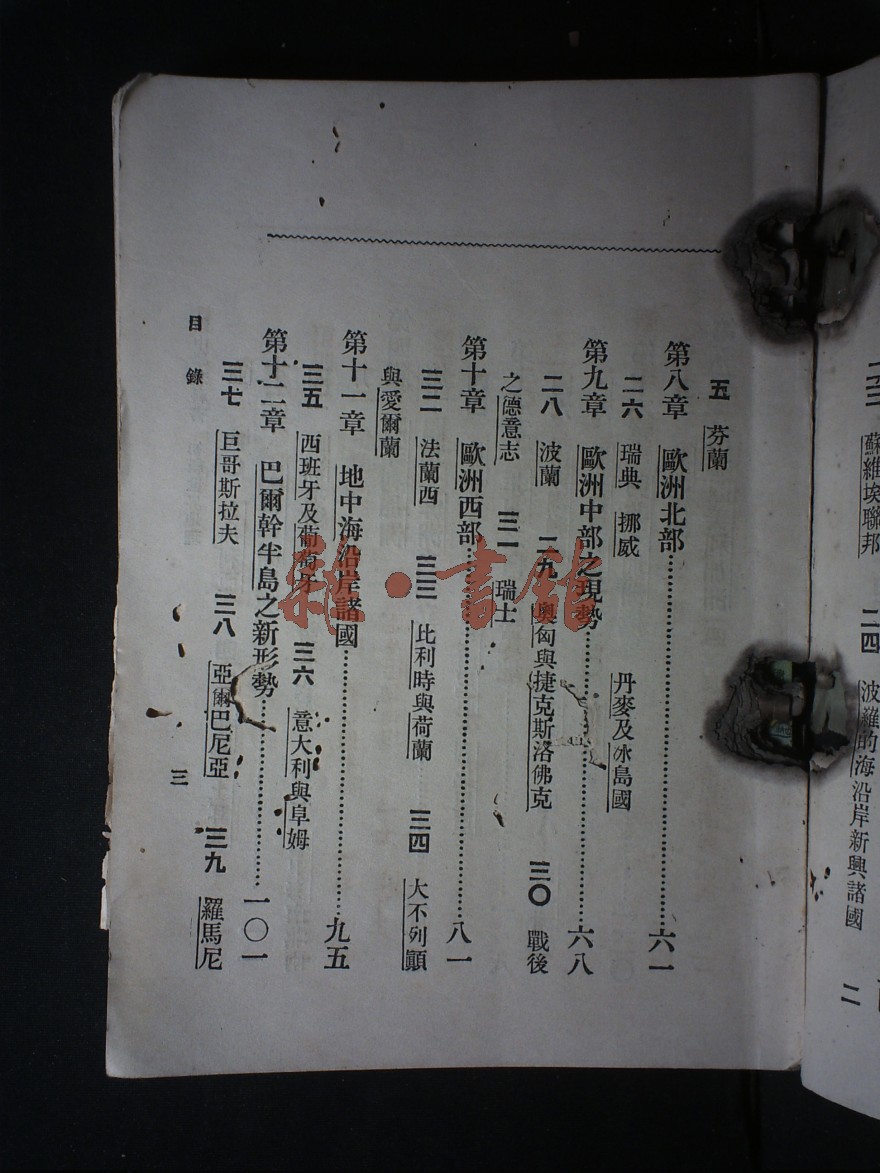 二三 蘇維埃聯邦 二四 波羅的海沿岸新興諸國 二
五 芬蘭
第八章 歐洲北部……六一
二六 瑞典 挪威 丹麥及冰島國
第九章 歐洲中部之現勢……六八
二八 波蘭 二九 奧匈與捷克斯洛佛克 三〇 戰後
之德意志 三一 瑞士
第十章 歐洲西部……八一
三二 法蘭西 三三 比利時與荷蘭 三四 大不列顚
與愛爾蘭
第十一章 地中海沿岸諸國……九五
三五 西班牙及葡萄牙 三六 意大利與阜姆
第十二章 巴爾幹半島之新形勢……一〇一
三七 巨哥斯拉夫 三八 亞爾巴尼亞 三九 羅馬尼
目錄 三
雜·書館